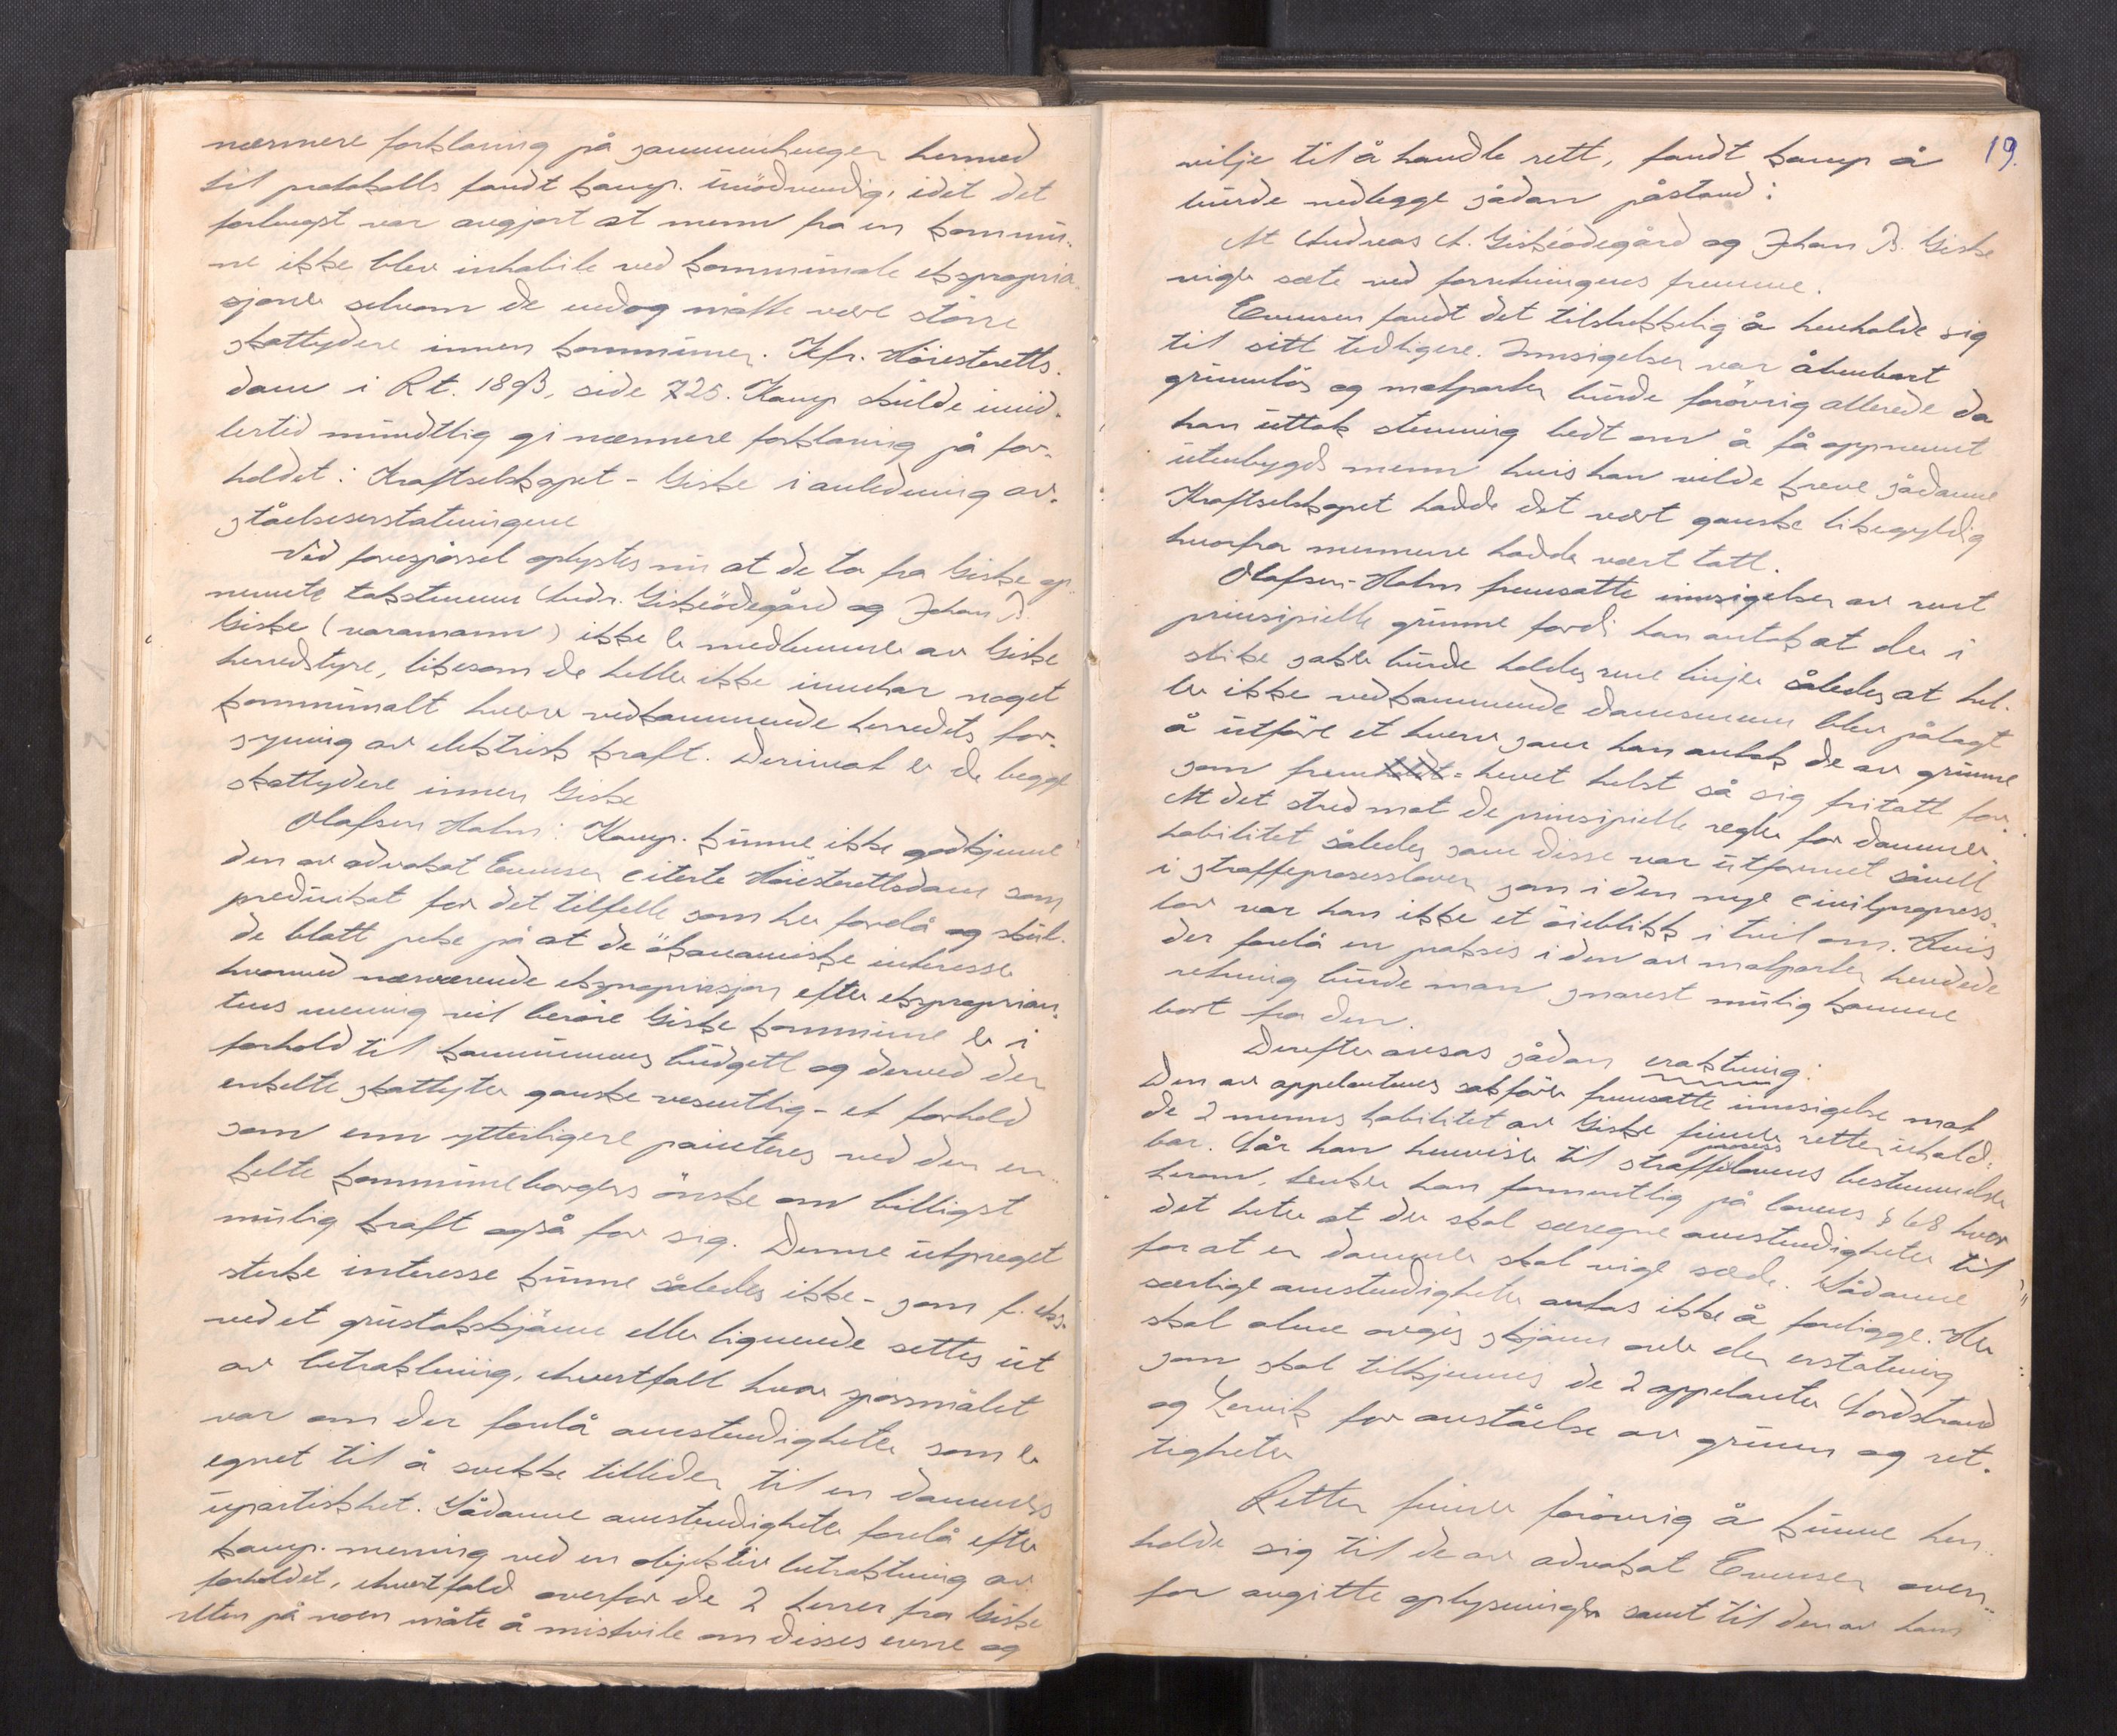 nærmere forklaring på sammenhengen hermed
til protokolls fandt komp. unödvendig, idet det
forlengst var avgjort at menn fra en kommu-
ne ikke blev inhabile ved kommunale ekspropria-
sjoner selvom de endog måtte være större
skattydere innen kommunen. Jfr. Höiesteretts-
dom i Rt. 1893, side 725. Komp skulde imid-
lertid mundtlig gi nærmere forklaring på for-
holdet: Kraftselskapet - Giske i anledning av-
ståelseserstatningene
Ved forespörsel oplystes nu at de to fra Giske op-
nevnte takstmenn Andr. Giskeödegård og Johan B.
Giske (varamann) ikke er medlemmer av Giske
herredstyre, likesom de heller ikke innehar noget
kommunalt hverv vedkommende herredets for-
syning av elektrisk kraft. Derimot er de begge
skattydere innen Giske
Olafsen Holm: Komp. kunne ikke godkjenne
den av advokat Evensen citerte Höiesterettsdom som
predikat for det tilfelle som her forelå og skul-
de blott peke på at de ökonomiske interesser
hvormed nærværende ekspropriasjon efter eksproprian-
tens mening vil beröre Giske kommune er i
forhold til kommunens budgett og derved den
enkelte skattyter ganske vesentlig - et forhold
som enn ytterligere pointeres ved den en-
kelte kommuneborgers önske om billigst
mulig kraft også for sig. Denne utpreget
sterke interesse kunne således ikke - som f. eks.
ved et grustakskjönn eller lignende settes ut
av betraktning, ihvertfall hvor spörsmålet
var om der forelå omstendigheter som er
egnet til å svekke tilliden til en dommers
upartiskhet. Sådanne omstendigheter forelå efter
komp. mening ved en objektiv betraktning av
forholdet, ihvertfald overfor de 2 herrer fra Giske
uten på noen måte å mistvile om disses evne og
19.
vilje til å handle rett, fandt komp å
burde nedlegge sådan påstand:
At Andreas A. Giskeödegård og Johan B. Giske
viger sæte ved forretningens fremme.
Evensen fandt det tilstrekkelig å henholde sig
til sitt tidligere. Innsigelsen var åbenbart
grunnlös og motparten burde forövrig allerede da
han uttok stemning bedt om å få oppnevnt
utenbygds menn hvis han vilde kreve sådanne
Kraftselskapet hadde det vært ganske likegyldig
hvorfra mennene hadde vært tatt.
Olafsen-Holm fremsatte innsigelsen av rent
prinsipielle grunne fordi han antok at der i
slike saker burde holdes rene linjer således at hel-
ler ikke vedkommende domsmenn blev pålagt
å utföre et hverv som han antok de av grunne
som fremholdt = hevet helst så sig fritatt for.
At det stred mot de prinsipielle regler for dommer-
habilitet således som disse var utformet såvell
i straffeprosessloven som i den nye civilprosess-
lov var han ikke et öieblikk i tvil om. Hvis
der forelå en praksis i den av motparten hevdede
retning burde man snarest mulig komme
bort fra den.
Derefter avsas sådan eraktning:
Den av appelantenes sakförer fremsatte innsigelse mot
de 2 menns habilitet av Giske finner retten uhold-
bar. Når han henviser til straffeprosesslovens bestemmelser
herom, tenker han formentlig på lovens § 68 hvor
det heter at der skal særegne omstendigheter til
for at en dommer skal vige sæde. Sådanne
særlige omstendigheter antas ikke å foreligge. Her
skal alene avgis skjönn over den erstatning
som skal tilkjennes de 2 appelanter Nordstrand
og Lervik for avståelse av grunn og ret-
tigheter
Retten finner forövrig å kunne hen-
holde sig til de av advokat Evensen oven-
for avgitte oplysninger samt til den av ham